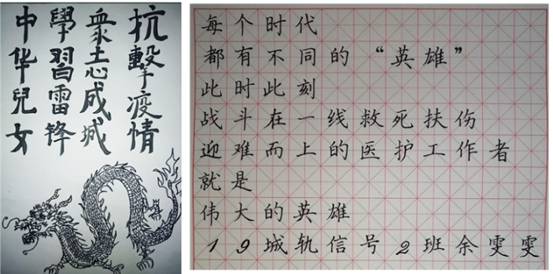 抗擊疫情
衆志成城
學習雷锋
中华兒女
每个时代
都有不同的“英雄”
此时此刻
战斗在一线救死扶伤
迎难而上的医护工作者
就是
伟大的英雄
19城轨信号2班余雯雯